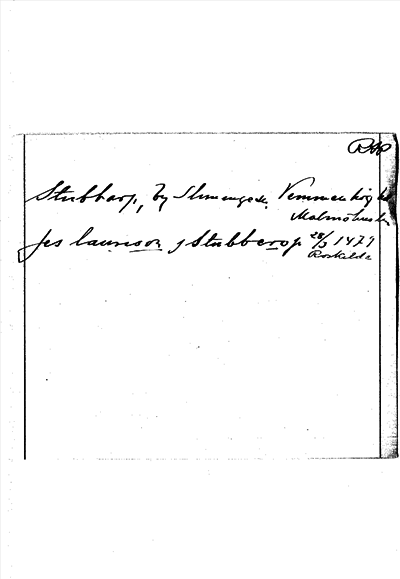 Stubbarp, by Slimminge sn, Vemmenhög hd
Malmöhus län
Jes laurisson j Stubberop 28/3 1479
Roskilde